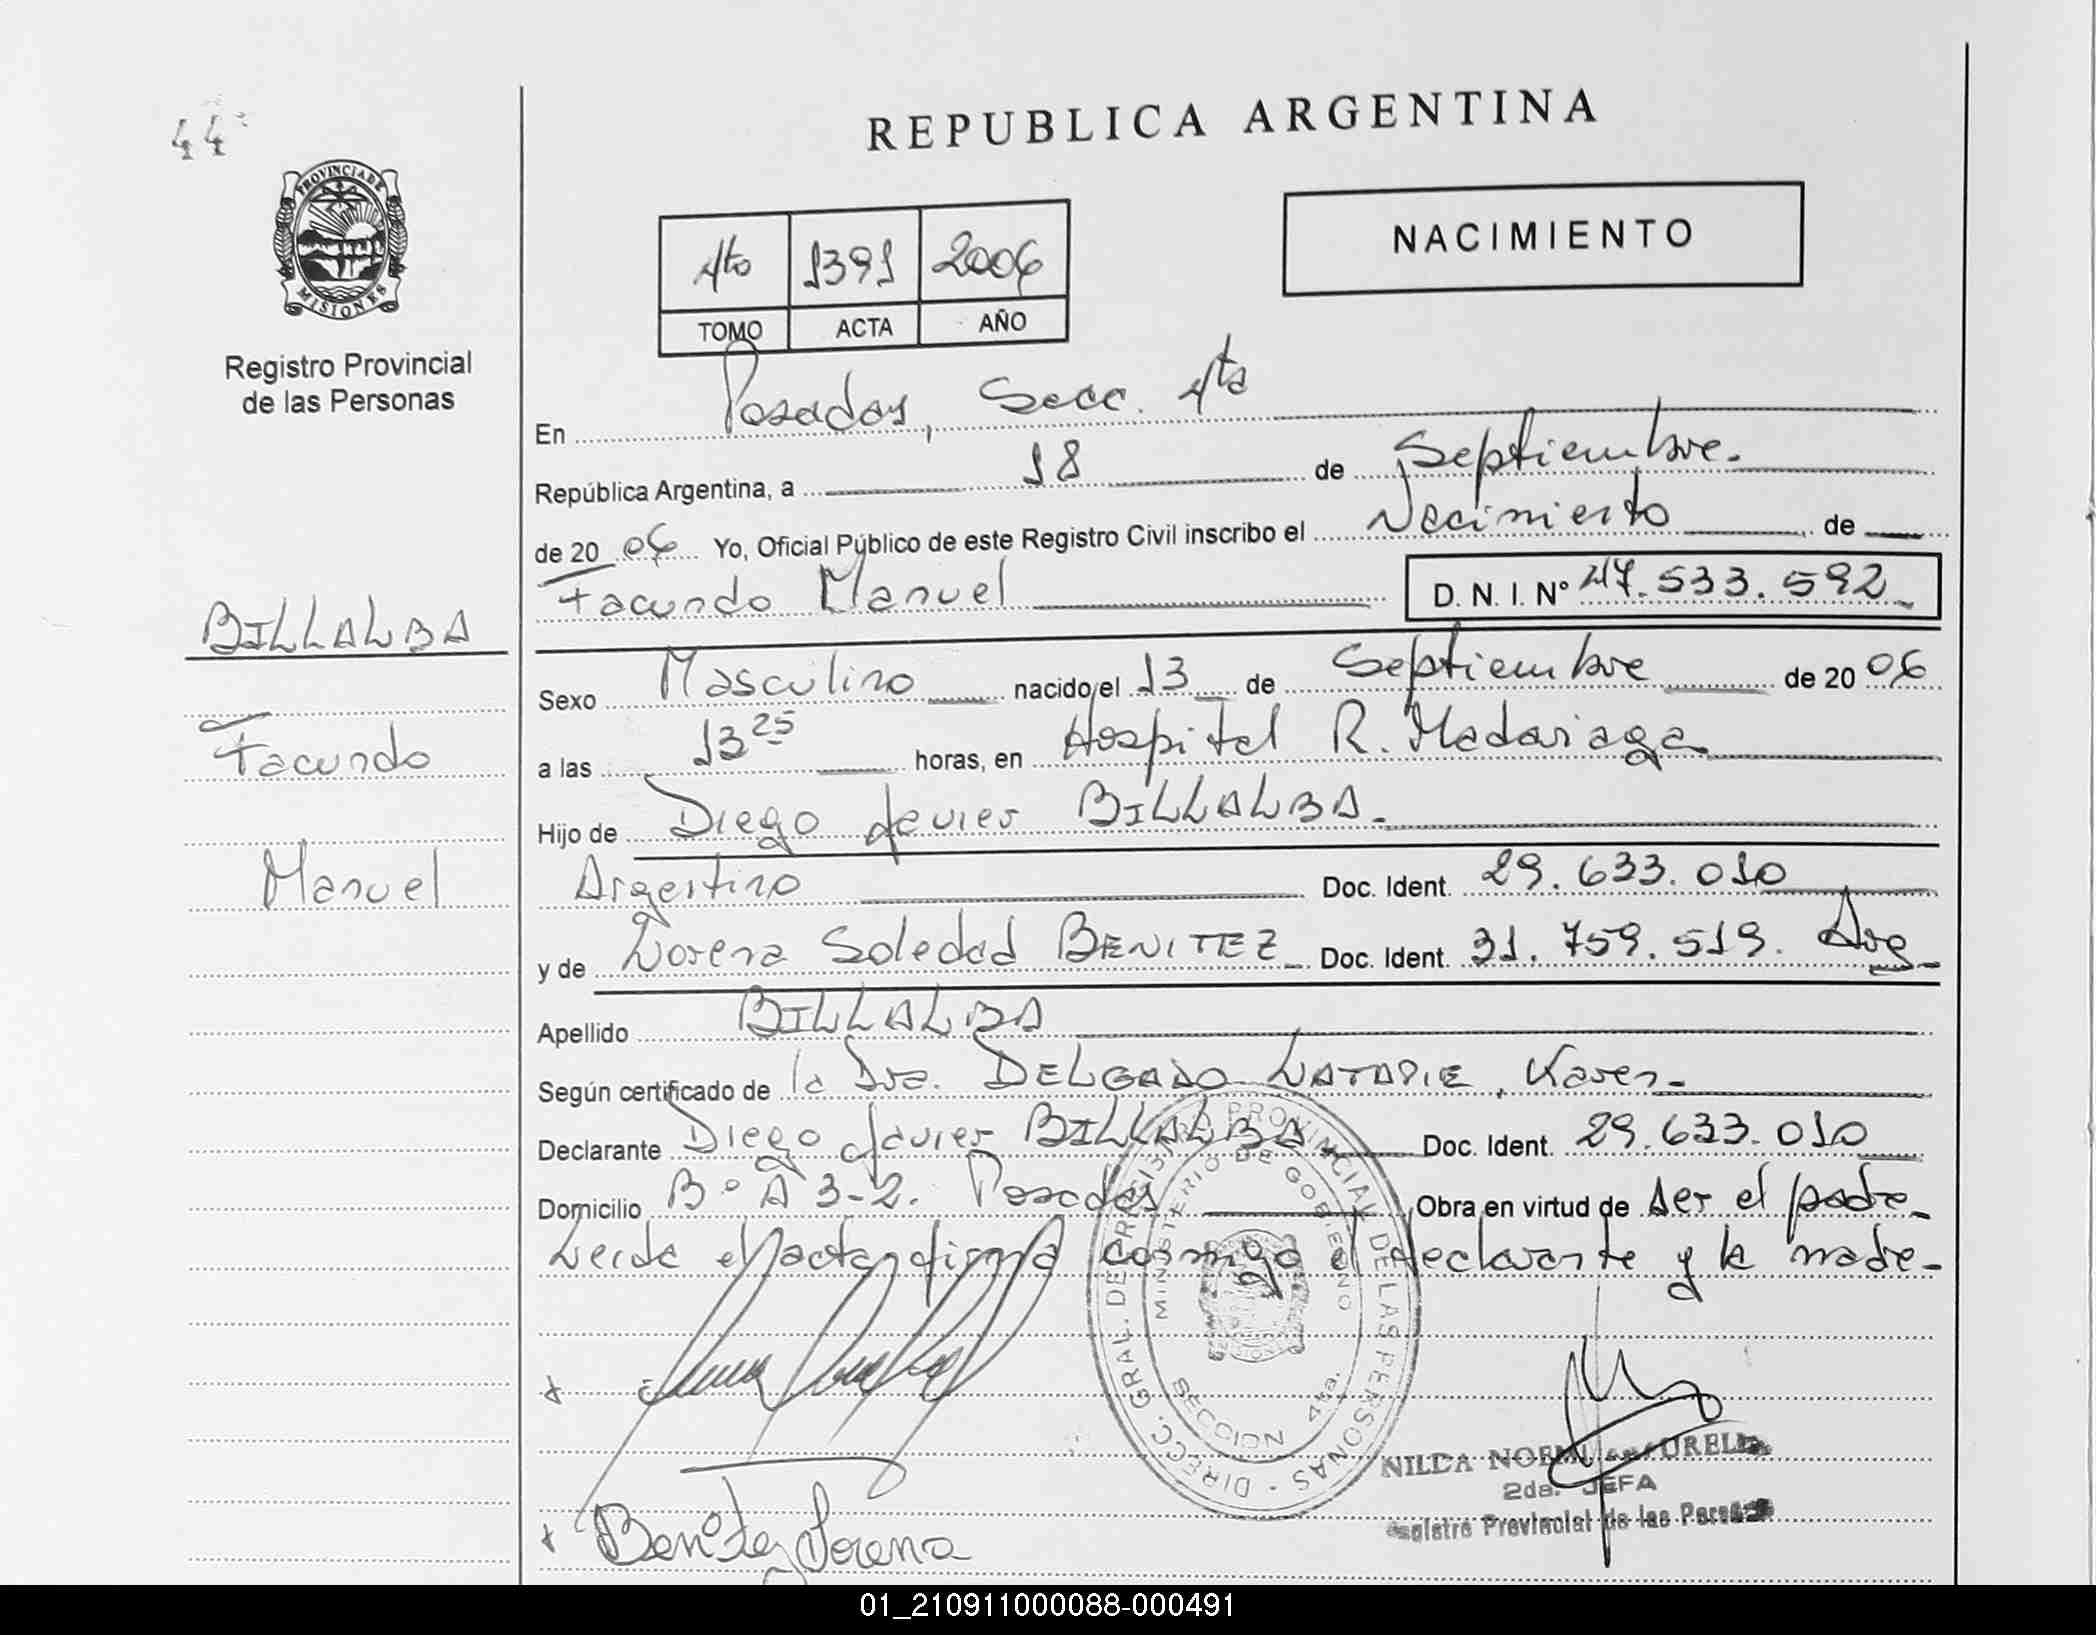 44
REPUBLICA ARGENTINA
PROVINCIA DE
MISIONES
Registro Provincial
de las Personas
4to 1391 2006
TOMO ACTA AÑO
NACIMIENTO
En Posadas, Secc. 4ta
República Argentina, a 18 de Septiembre.
de 20 06 Yo, Oficial Público de este Registro Civil inscribo el Nacimiento de
Facundo Manuel D. N. I. Nº 47.533.592
BILLALBA
Facundo
Manuel
Sexo Masculino nacido el 13 de Septiembre de 20 06
a las 13 25 horas, en Hospital R. Madariaga
Hijo de Diego Javier BILLALBA.
Argentino Doc. Ident. 29.633.010
y de Lorena Soledad BENITEZ Doc. Ident. 31.759.519. Arg
Apellido BILLALBA
Según certificado de la Dra. DELGADO LATAPIE, Karen
Declarante Diego Javier BILLALBA Doc. Ident. 29.633.010
Domicilio Bº A 3-2. Posadas Obra en virtud de ser el padre
Leida el acta firma conmigo el declarante y la madre
DIRECC. GRAL. DE REGISTRO PROVINCIAL DE LAS PERSONAS
MINISTERIO DE GOBIERNO
SECCION 4ta.
NILDA NOEMI
2da. JEFA
Registro Provincial de las Personas
Benitez Lorena
01_210911000088-000491